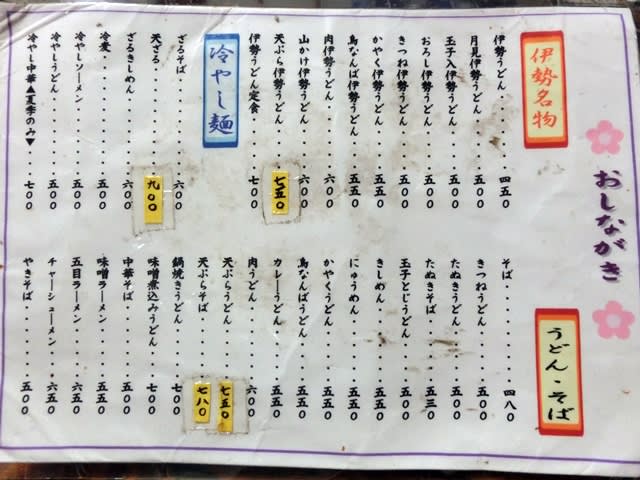 おしながき
伊勢名物
伊勢うどん・・・・・四五0
月見伊勢うどん・・・・五00
玉子入伊勢うどん・・・五00
おろし伊勢うどん・・・五00
きつね伊勢うどん・・・五00
かやく伊勢うどん・・・五五0
鳥なんば伊勢うどん・・五五0
肉伊勢うどん・・・・・六00
山かけ伊勢うどん・・・六00
天ぷら伊勢うどん・・・七五0
伊勢うどん定食・・・・七00
冷やし麺
ざるそば・・・・・・・六00
天ざる・・・・・・・・九00
ざるきしめん・・・・・六00
冷麦・・・・・・・・・五00
冷やしソーメン・・・・五00
冷やしうどん・・・・・五00
冷やし中華▲夏季のみ▼・・・七00
うどん・そば
そば・・・・・・・・・四八0
きつねうどん・・・・・五00
たぬきうどん・・・・・五00
たぬきそば・・・・・・五三0
玉子とじうどん・・・・五00
きしめん・・・・・・・五00
にゅうめん・・・・・・五五0
かやくうどん・・・・・五五0
鳥なんばうどん・・・・五五0
カレーうどん・・・・・五五0
肉うどん・・・・・・・六00
天ぷらうどん・・・・・七五0
天ぷらそば・・・・・・七八0
鍋焼きうどん・・・・・七00
味噌煮込みうどん・・・七00
中華そば・・・・・・・五00
味噌ラーメン・・・・・五五0
五目ラーメン・・・・・六五0
チャーシューメン・・・六五0
やきそば・・・・・・・五00